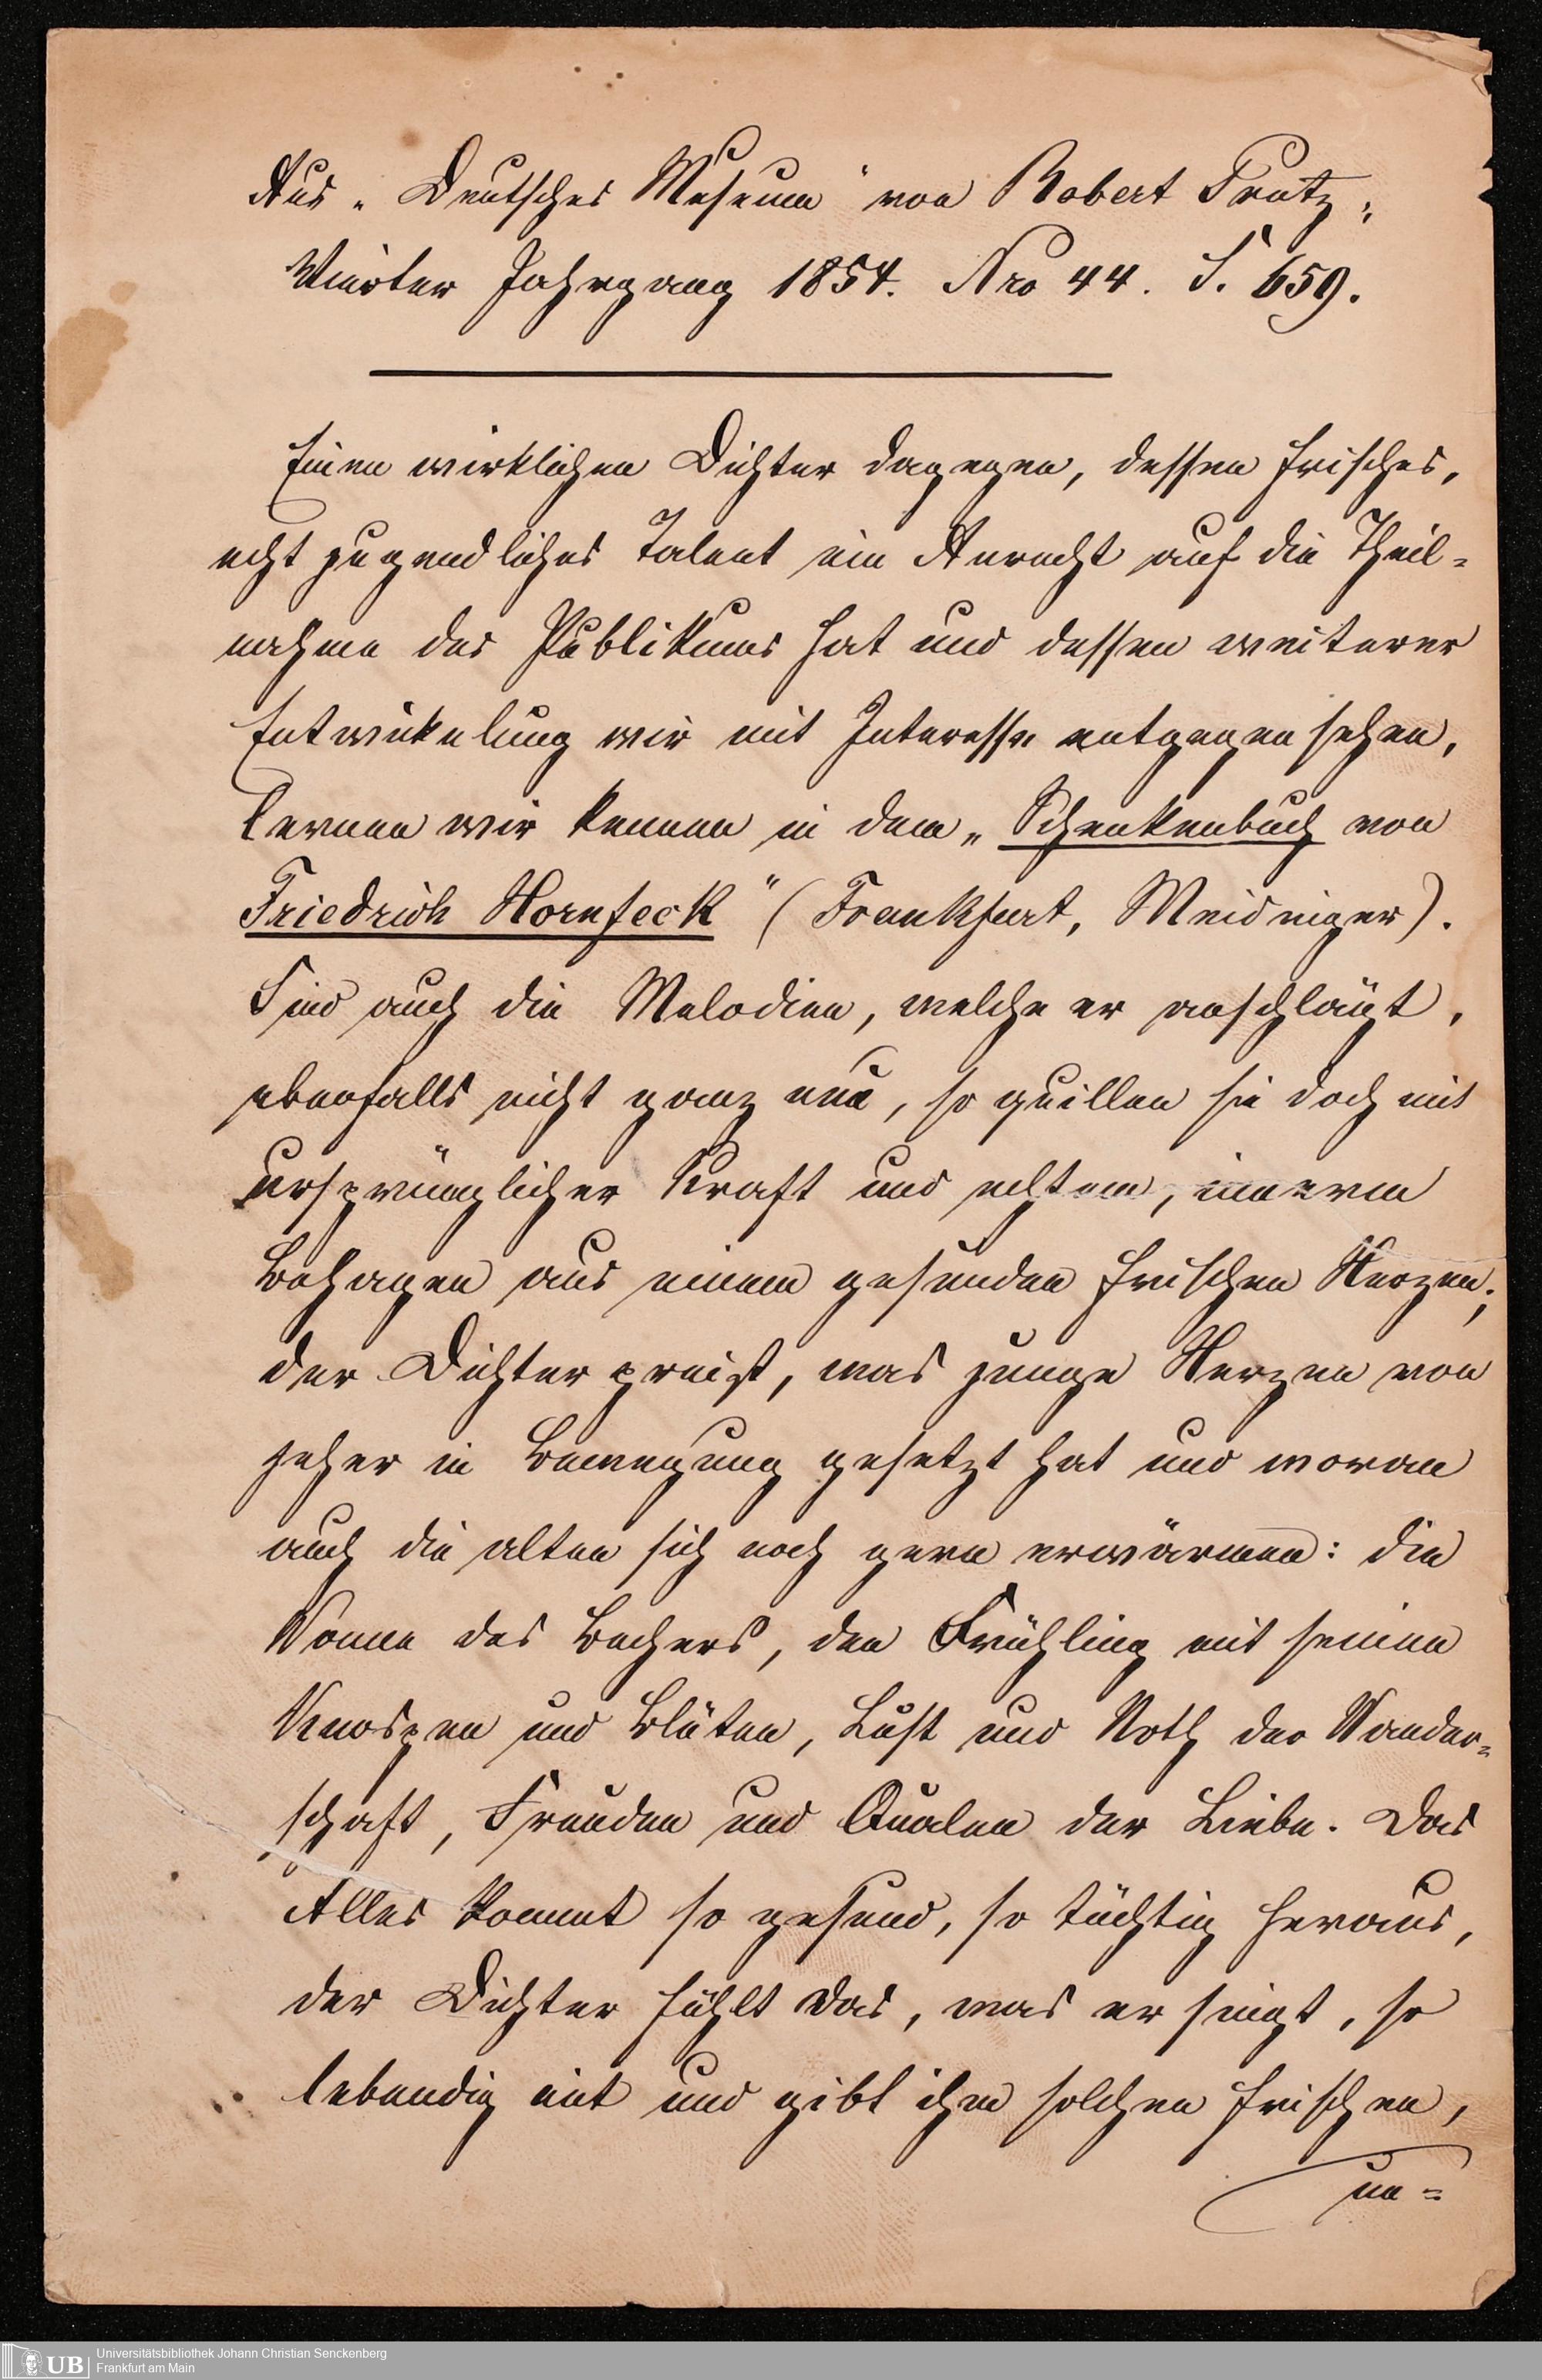 Aus „Deutsches Museum" von Robert Prutz,
Vierter Jahrgang 1854. Nro 44. S. 659.
Einen wirklichen Dichter dagegen, dessen frisches,
echt jugendliches Talent ein Anrecht auf die Theil=
nahme des Publikums hat und dessen weiterer
Entwickelung wir mit Interesse entgegen sehen,
lernen wir kennen in dem „Schenkenbuch von
Friedrich Hornfeck" (Frankfurt, Meidinger).
Sind auch die Melodien, welche er anschlägt,
ebenfalls nicht ganz neu, so quillen sie doch mit
ursprünglicher Kraft und echtem, innerm
Behagen aus einem gesunden frischen Herzen;
der Dichter preist, was junge Herzen von
jeher in Bewegung gesetzt hat und woran
auch die alten sich noch gern erwärmen: die
Wonne des Bechers, den Frühling mit seinen
Knospen und Blüten, Lust und Noth der Wander=
schaft, Freuden und Qualen der Liebe. Das
Alles kommt so gesund, so tüchtig heraus,
der Dichter fühlt das, was er singt, so
lebendig mit und gibt ihm solchen frischen,
un=
UB
Universitätsbibliothek Johann Christian Senckenberg
Frankfurt am Main